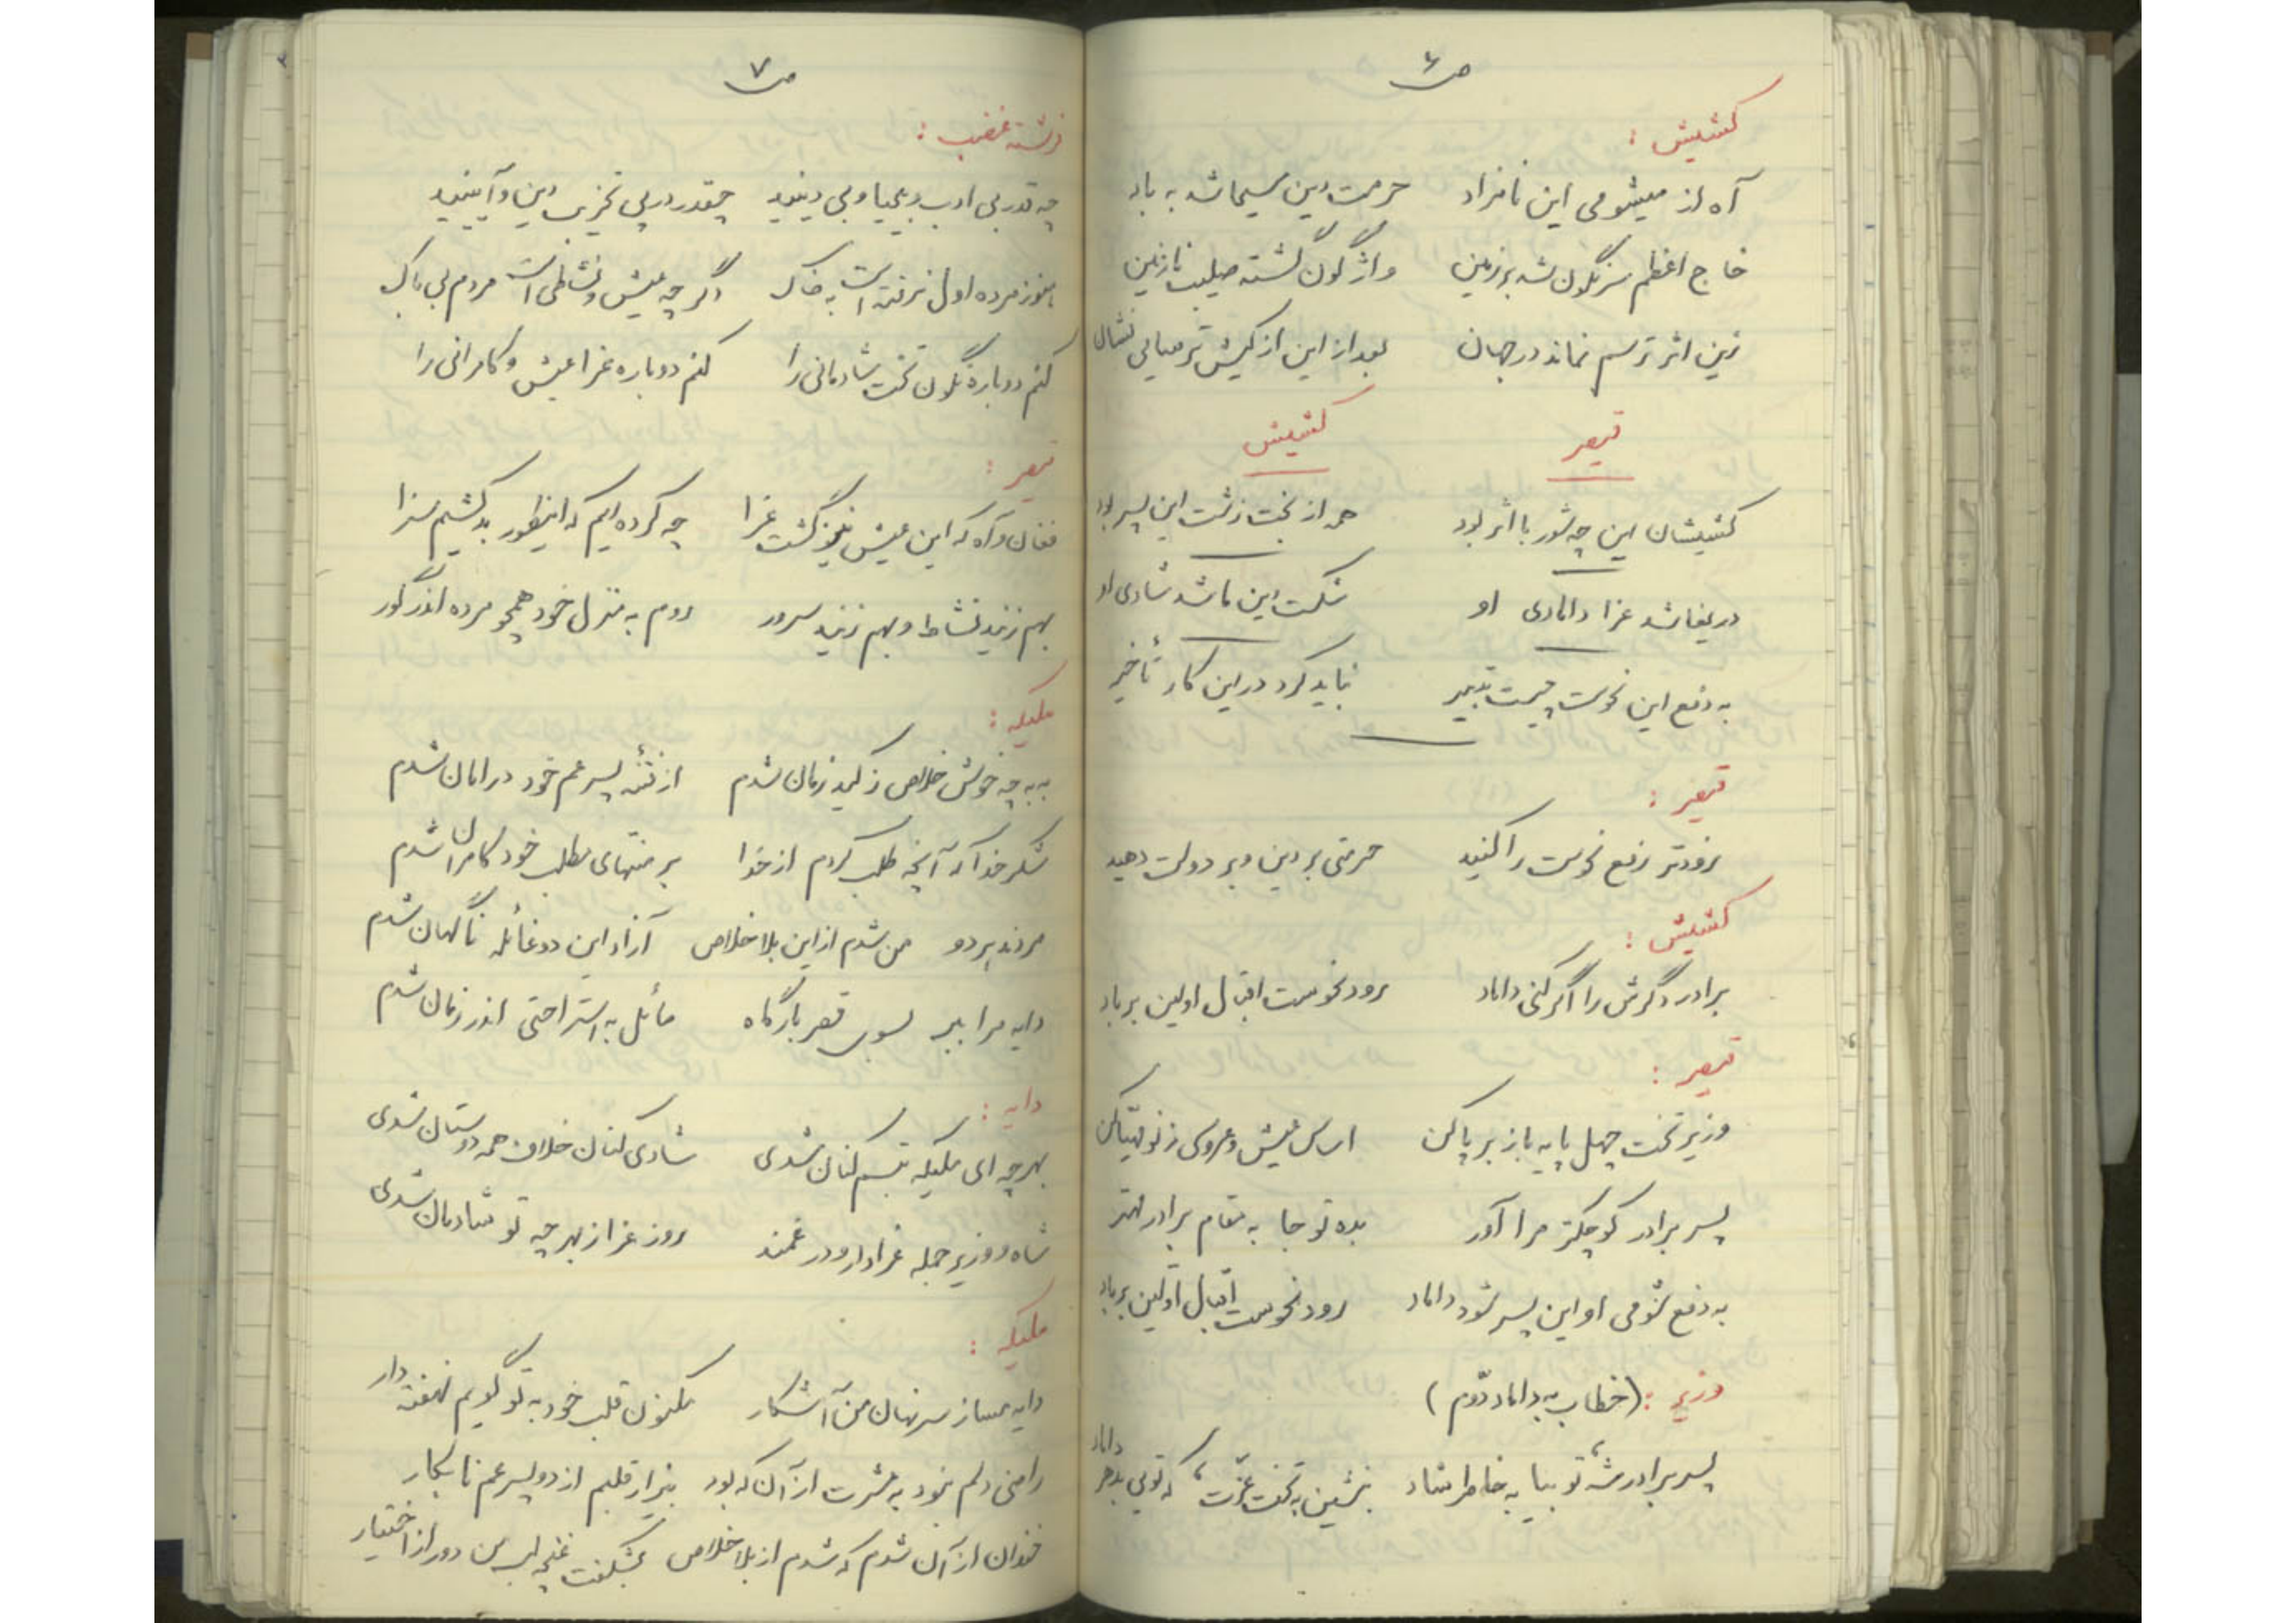 ص ۶
کشیش :
آه از میشومی این نامراد حرمت دین مسیحا شد به باد
خاج اعظم سرنگون شد بر زمین واژگون گشته صلیب نازنین
زین اثر ترسم نماند در جهان بعد از این از کیش ترسایی نشان
قیصر کشیش
کشیشان این چه شور با اثر بود همه از بخت زشت این پسر بود
دریغا شد عزا دامادی او شکست دین ما شد شادی او
به دفع این نحوست چیست تدبیر نباید کرد در این کار تأخیر
قیصر :
زودتر رفع نحوست را کنید حرمتی بر دین و بر دولت دهید
کشیش :
برادر دگرش را اگر کنی داماد رود نحوست اقبال اولین بر باد
قیصر :
وزیر تخت چهل پایه باز بر پا کن اساس عیش و عروسی ز نو مهیّا کن
پسر برادر کوچکتر مرا آور بده تو جا به مقام برادر مهتر
به دفع شومی او این پسر شود داماد رود نحوست اقبال اوّلین بر باد
وزیر : (خطاب به داماد دوّم)
پسر برادر شه، تو بیا به خاطر شاد بنشین به تخت عزّت، که تویی داماد
ص ۷
فرشته غضب :
چه قدر بی ادب و بیحیا و بی دینید چقدر در پی تخریب دین و آیینید
هنوز مرده اول نرفته است به خاک دگر چه عیش و نشاطی است مردم بی باک
کنم دوباره نگون تخت شادمانی را کنم دوباره عزا عیش و کامرانی را
قیصر :
فغان و آه که این عیش نیز گشت عزا چه کرده ایم که اینطور بد کشیم سزا
بهم زنید نشاط و بهم زنید سرور روم به منزل خود همچو مرده اندر گور
ملیکه :
به به چه خوش خلاص ز کید زمان شدم از فتنه پسر عم خود در امان شدم
شکر خدا که آنچه طلب کردم از خدا بر منتهای مطلب خود کامران شدم
مردند هر دو من شدم از این بلا خلاص آزاد این دو غائله ناگهان شدم
دایه مرا ببر بسوی قصر بارگاه مائل به استراحتی اندر زمان شدم
دایه :
بهر چه ای ملیکه تبسم کنان شدی شادی کنان خلاف همه دوستان شدی
شاه و وزیر جمله عزادار و در غمند روز عزا ز بهر چه تو شادمان شدی
ملیکه :
دایه مساز سر نهان من آشکار مکنون قلب خود به تو گویم نهفته دار
راضی دلم نبود به عشرت از آن که بود بیزار قلبم از دو پسر عم نابکار
خندان از آن شدم که شدم از بلا خلاص بشکفت غنچه لب من دور از اختیار